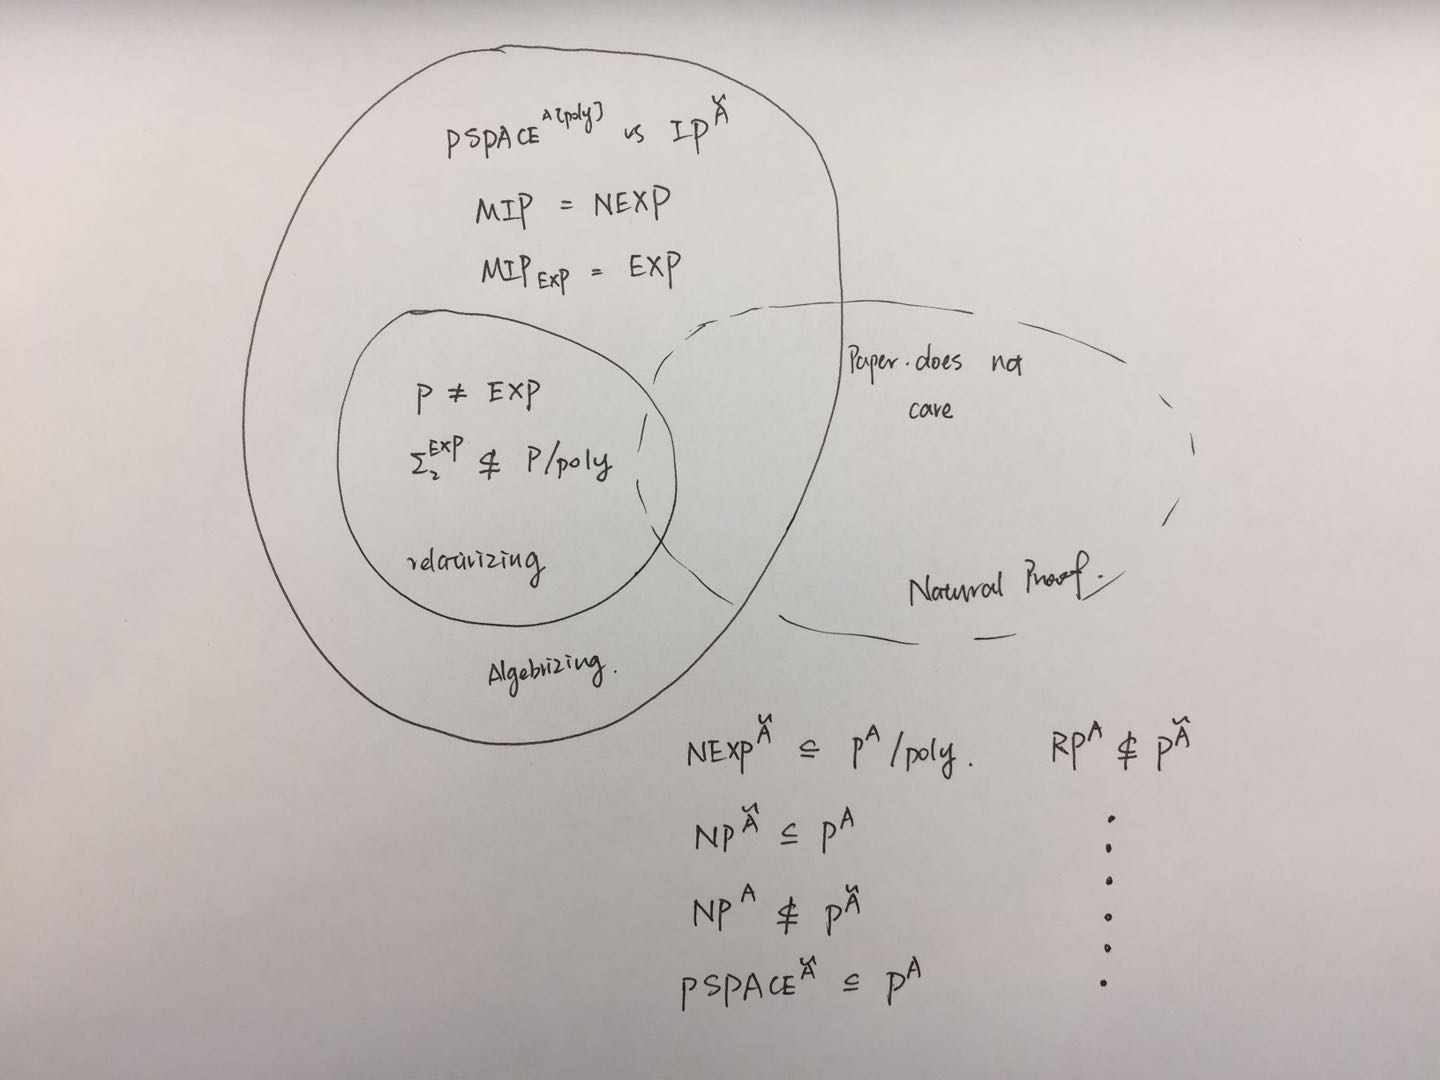 PSPACE^A[poly] vs IP^Ã
MIP = NEXP
MIP_EXP = EXP
P ≠ EXP
Σ₂^EXP ⊈ P/poly
relativizing
Algebrizing.
Paper does not
care
Natural Proof.
NEXP^Ã ⊆ P^A/poly. RP^A ⊈ P^Ã
NP^Ã ⊆ P^A
NP^A ⊈ P^Ã
PSPACE^Ã ⊆ P^A